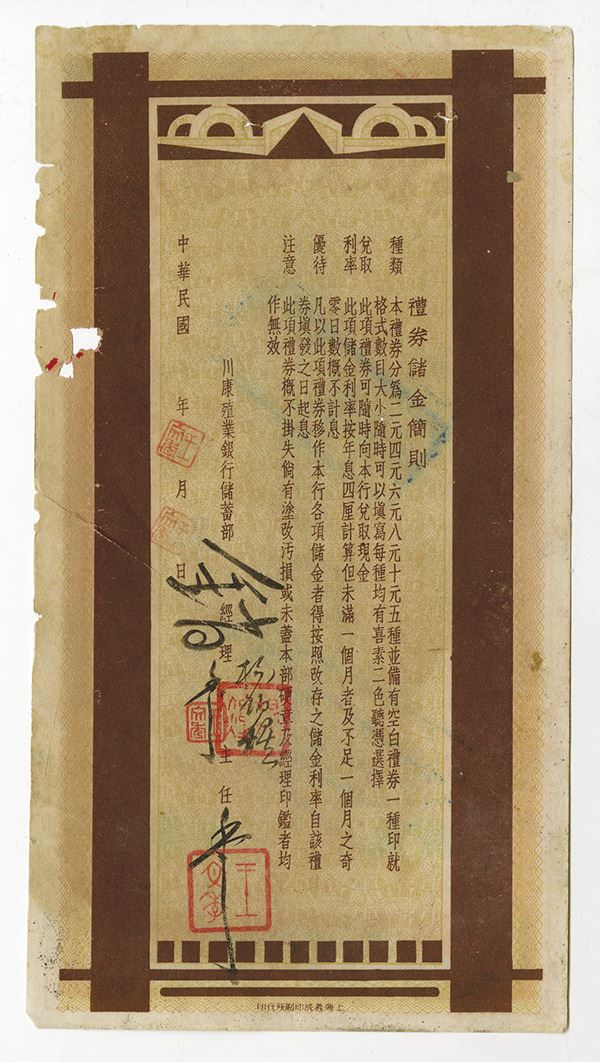 禮券儲金簡則
種類 本禮券分爲二元四元六元八元十元五種並備有空白禮券一種印就
格式數目大小隨時可以填寫每種均有喜素二色聽憑選擇
兌取 此項禮券可隨時向本行兌取現金
利率 此項儲金利率按年息四厘計算但未滿一個月者及不足一個月之奇
零日數概不計息
優待 凡以此項禮券移作本行各項儲金者得按照改存之儲金利率自該禮
券填發之日起息
注意 此項禮券概不掛失倘有塗改汚損或未蓋本部硬章及經理印鑑者均
作無效
川康殖業銀行儲蓄部 經理 主任
中華民國 年 月 日
上海義成印刷所代印